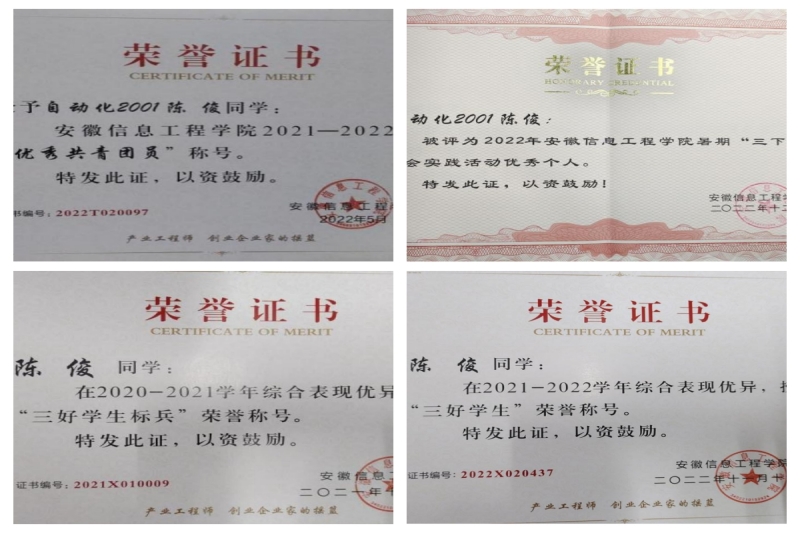 荣誉证书
CERTIFICATE OF MERIT
予自动化2001 陈 俊同学：
安徽信息工程学院2021—2022
优秀共青团员”称号。
特发此证，以资鼓励。
书编号：2022T020097
安徽信息工程
2022年5月
产业工程师 创业企业家的摇篮
荣誉证书
HONORARY CREDENTIAL
动化2001 陈俊：
被评为2022年安徽信息工程学院暑期“三下
会实践活动优秀个人。
特发此证，以资鼓励！
安徽信息工程
二〇二二年十二
荣誉证书
CERTIFICATE OF MERIT
陈 俊 同学：
在2020-2021学年综合表现优异
“三好学生标兵”荣誉称号。
特发此证，以资鼓励。
证书编号：2021X010009
安徽信息
二〇二一年十
产业工程师 创业企业家的摇篮
荣誉证书
CERTIFICATE OF MERIT
陈 俊 同学：
在2021-2022学年综合表现优异，
“三好学生”荣誉称号。
特发此证，以资鼓励。
证书编号：2022X020437
安徽信息工程学院
二〇二二年十一月十
产业工程师 创业企业家的摇篮